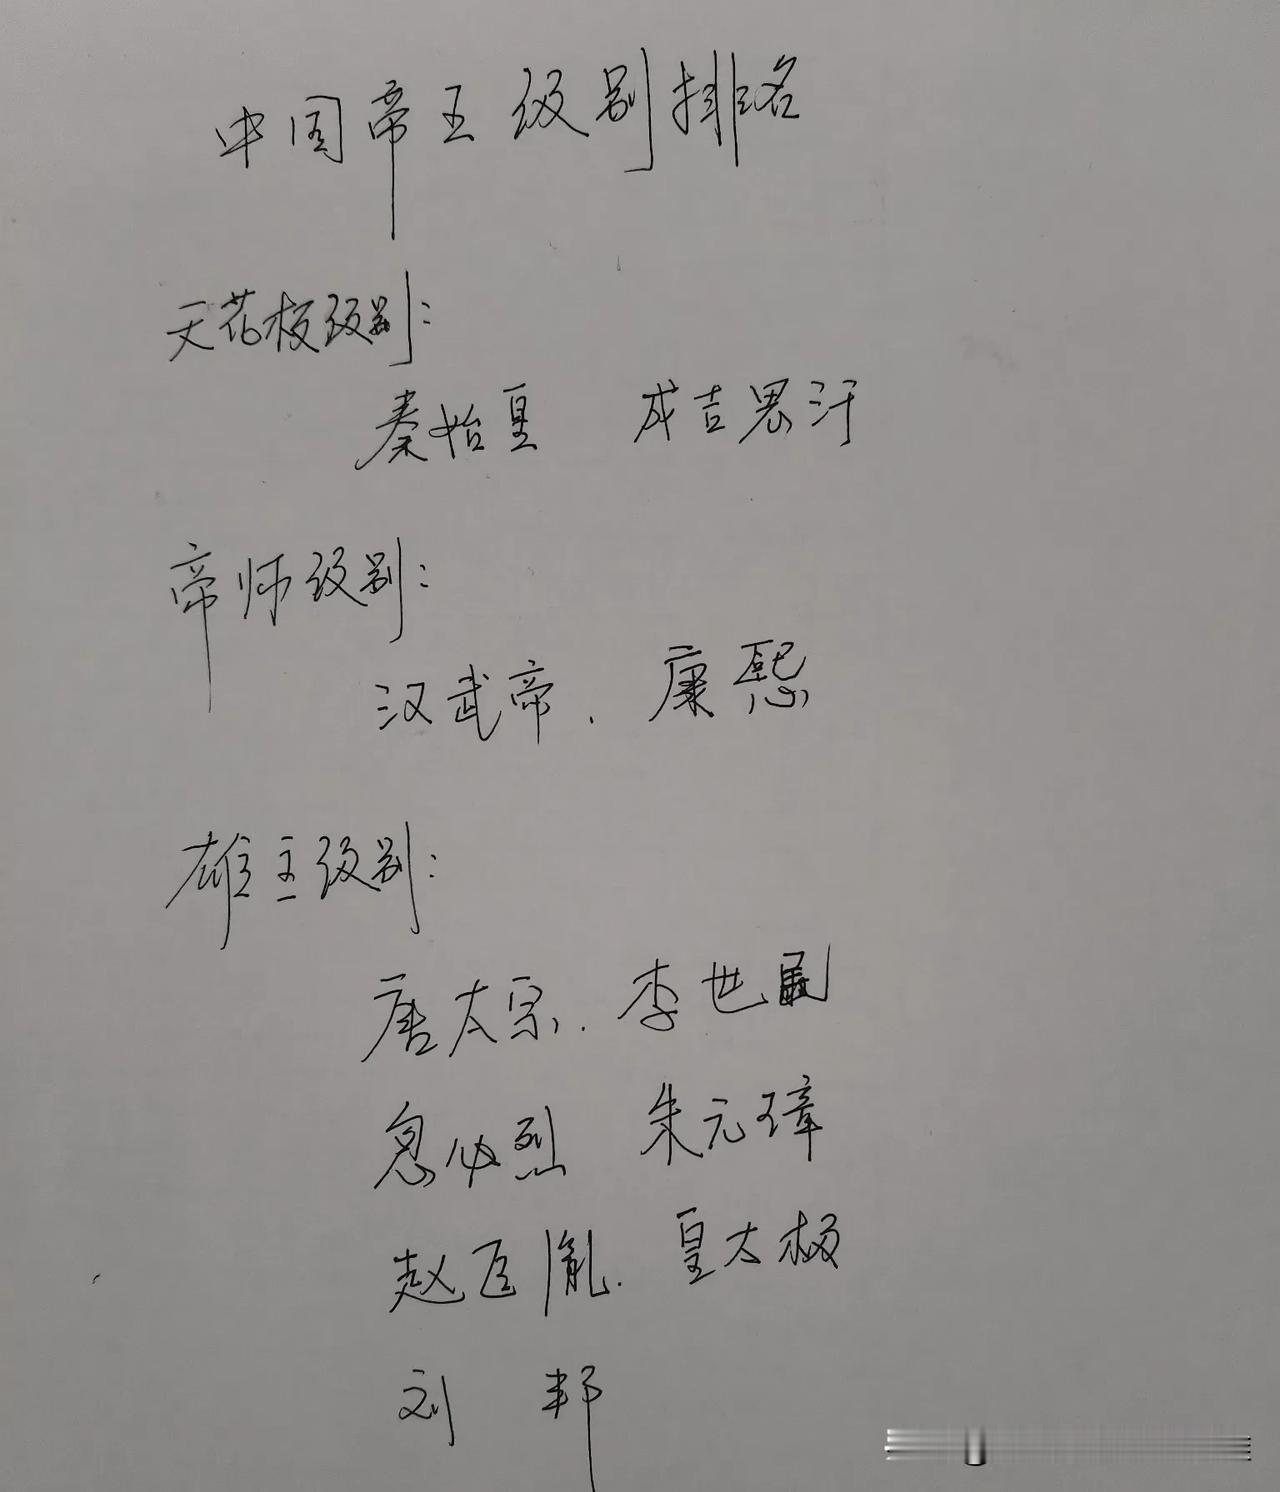 中国帝王级别排名
天花板级别:
秦始皇 成吉思汗
帝师级别:
汉武帝. 康熙
雄主级别:
唐太宗. 李世民
忽必烈 朱元璋
赵匡胤. 皇太极
刘 邦